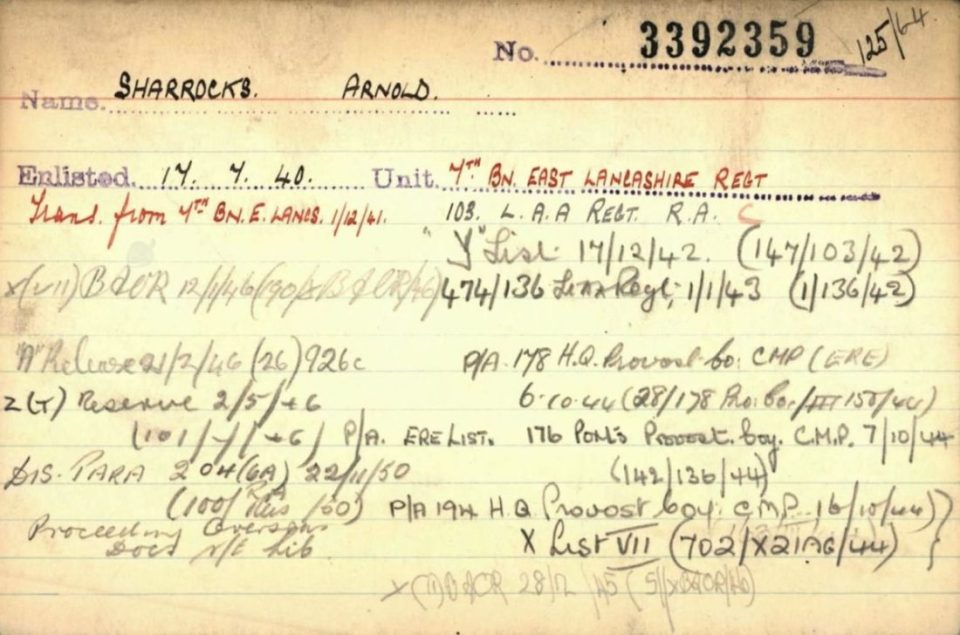 No. 3392359 125/64.
Name. SHARROCKS. ARNOLD.
Enlisted. 17. 7. 40. Unit. 7TH BN. EAST LANCASHIRE REGT
Trans. from 7TH BN. E. LANCS. 1/12/41. 103. L.A.A REGT. R.A.
"Y" List 17/12/42. (147/103/42)
X(VII) BAOR 12/1/46
474/136 Regt; 1/1/43 (1/136/42)
"A" Release 21/2/46 (26) 926c
P/A. 178 H.Q. Provost Co. CMP (ERE)
Z(T) Reserve 2/5/46
6.10.44 (28/178 Pro. Co./III 150/44)
(101/ /46) P/A. ERE LIST. 176 Provost. Coy. C.M.P. 7/10/44
DIS. PARA 204(6A) 22/11/50
(142/136/44)
(100/ /50)
P/A 194 H.Q Provost Coy. CMP. 16/10/44)
Proceeding Overseas
X List VII (702/X21AG/44)
Docs Lib
BAOR 28/12/45